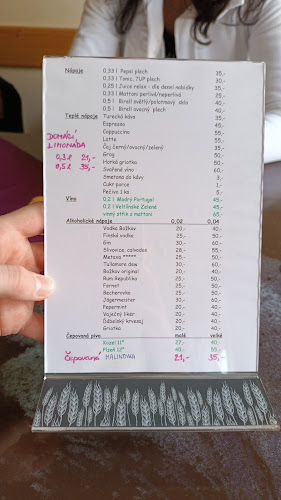 Nápoje 0,33 l Pepsi plech 35,-
0,33 l Tonic, 7UP plech 30,-
0,25 l Juice relax - dle denní nabídky 35,-
0,33 l Mattoni perlivá/neperlivá 25,-
0,5 l Birell světlý/polotmavý sklo 40,-
0,5 l Birell ovocný plech 40,-
Teplé nápoje Turecká káva 35,-
Espresso 45,-
Cappuccino 55,-
Latte 55,-
Čaj černý/ovocný/zelený 35,-
Grog 50,-
Horká griotka 50,-
Svařené víno 60,-
Smetana do kávy 3,-
Cukr porce 1,-
Pečivo 1 ks 5,-
DOMÁCÍ
LIMONÁDA
0,3 l 21,-
0,5 l 35,-
Víno 0,2 l Modrý Portugal 45,-
0,2 l Veltlínské Zelené 45,-
vinný střik s mattoni 65,-
Alkoholické nápoje 0,02 0,04
Vodka Božkov 20,- 40,-
Finská vodka 25,- 50,-
Gin 30,- 60,-
Slivovice, calvados 28,- 55,-
Metaxa ***** 25,- 50,-
Tullamore dew 30,- 60,-
Božkov original 20,- 40,-
Rum Republika 25,- 50,-
Fernet 25,- 50,-
Becherovka 25,- 50,-
Jägermeister 30,- 60,-
Pepermint 20,- 40,-
Vaječný likér 20,- 40,-
Ďábelský krvesaj 20,- 40,-
Griotka 20,- 40,-
Čepovaná piva malé velké
Kozel 11° 27,- 40,-
Plzeň 12° 40,- 55,-
Čepovaná MALINOVKA 21,- 35,-